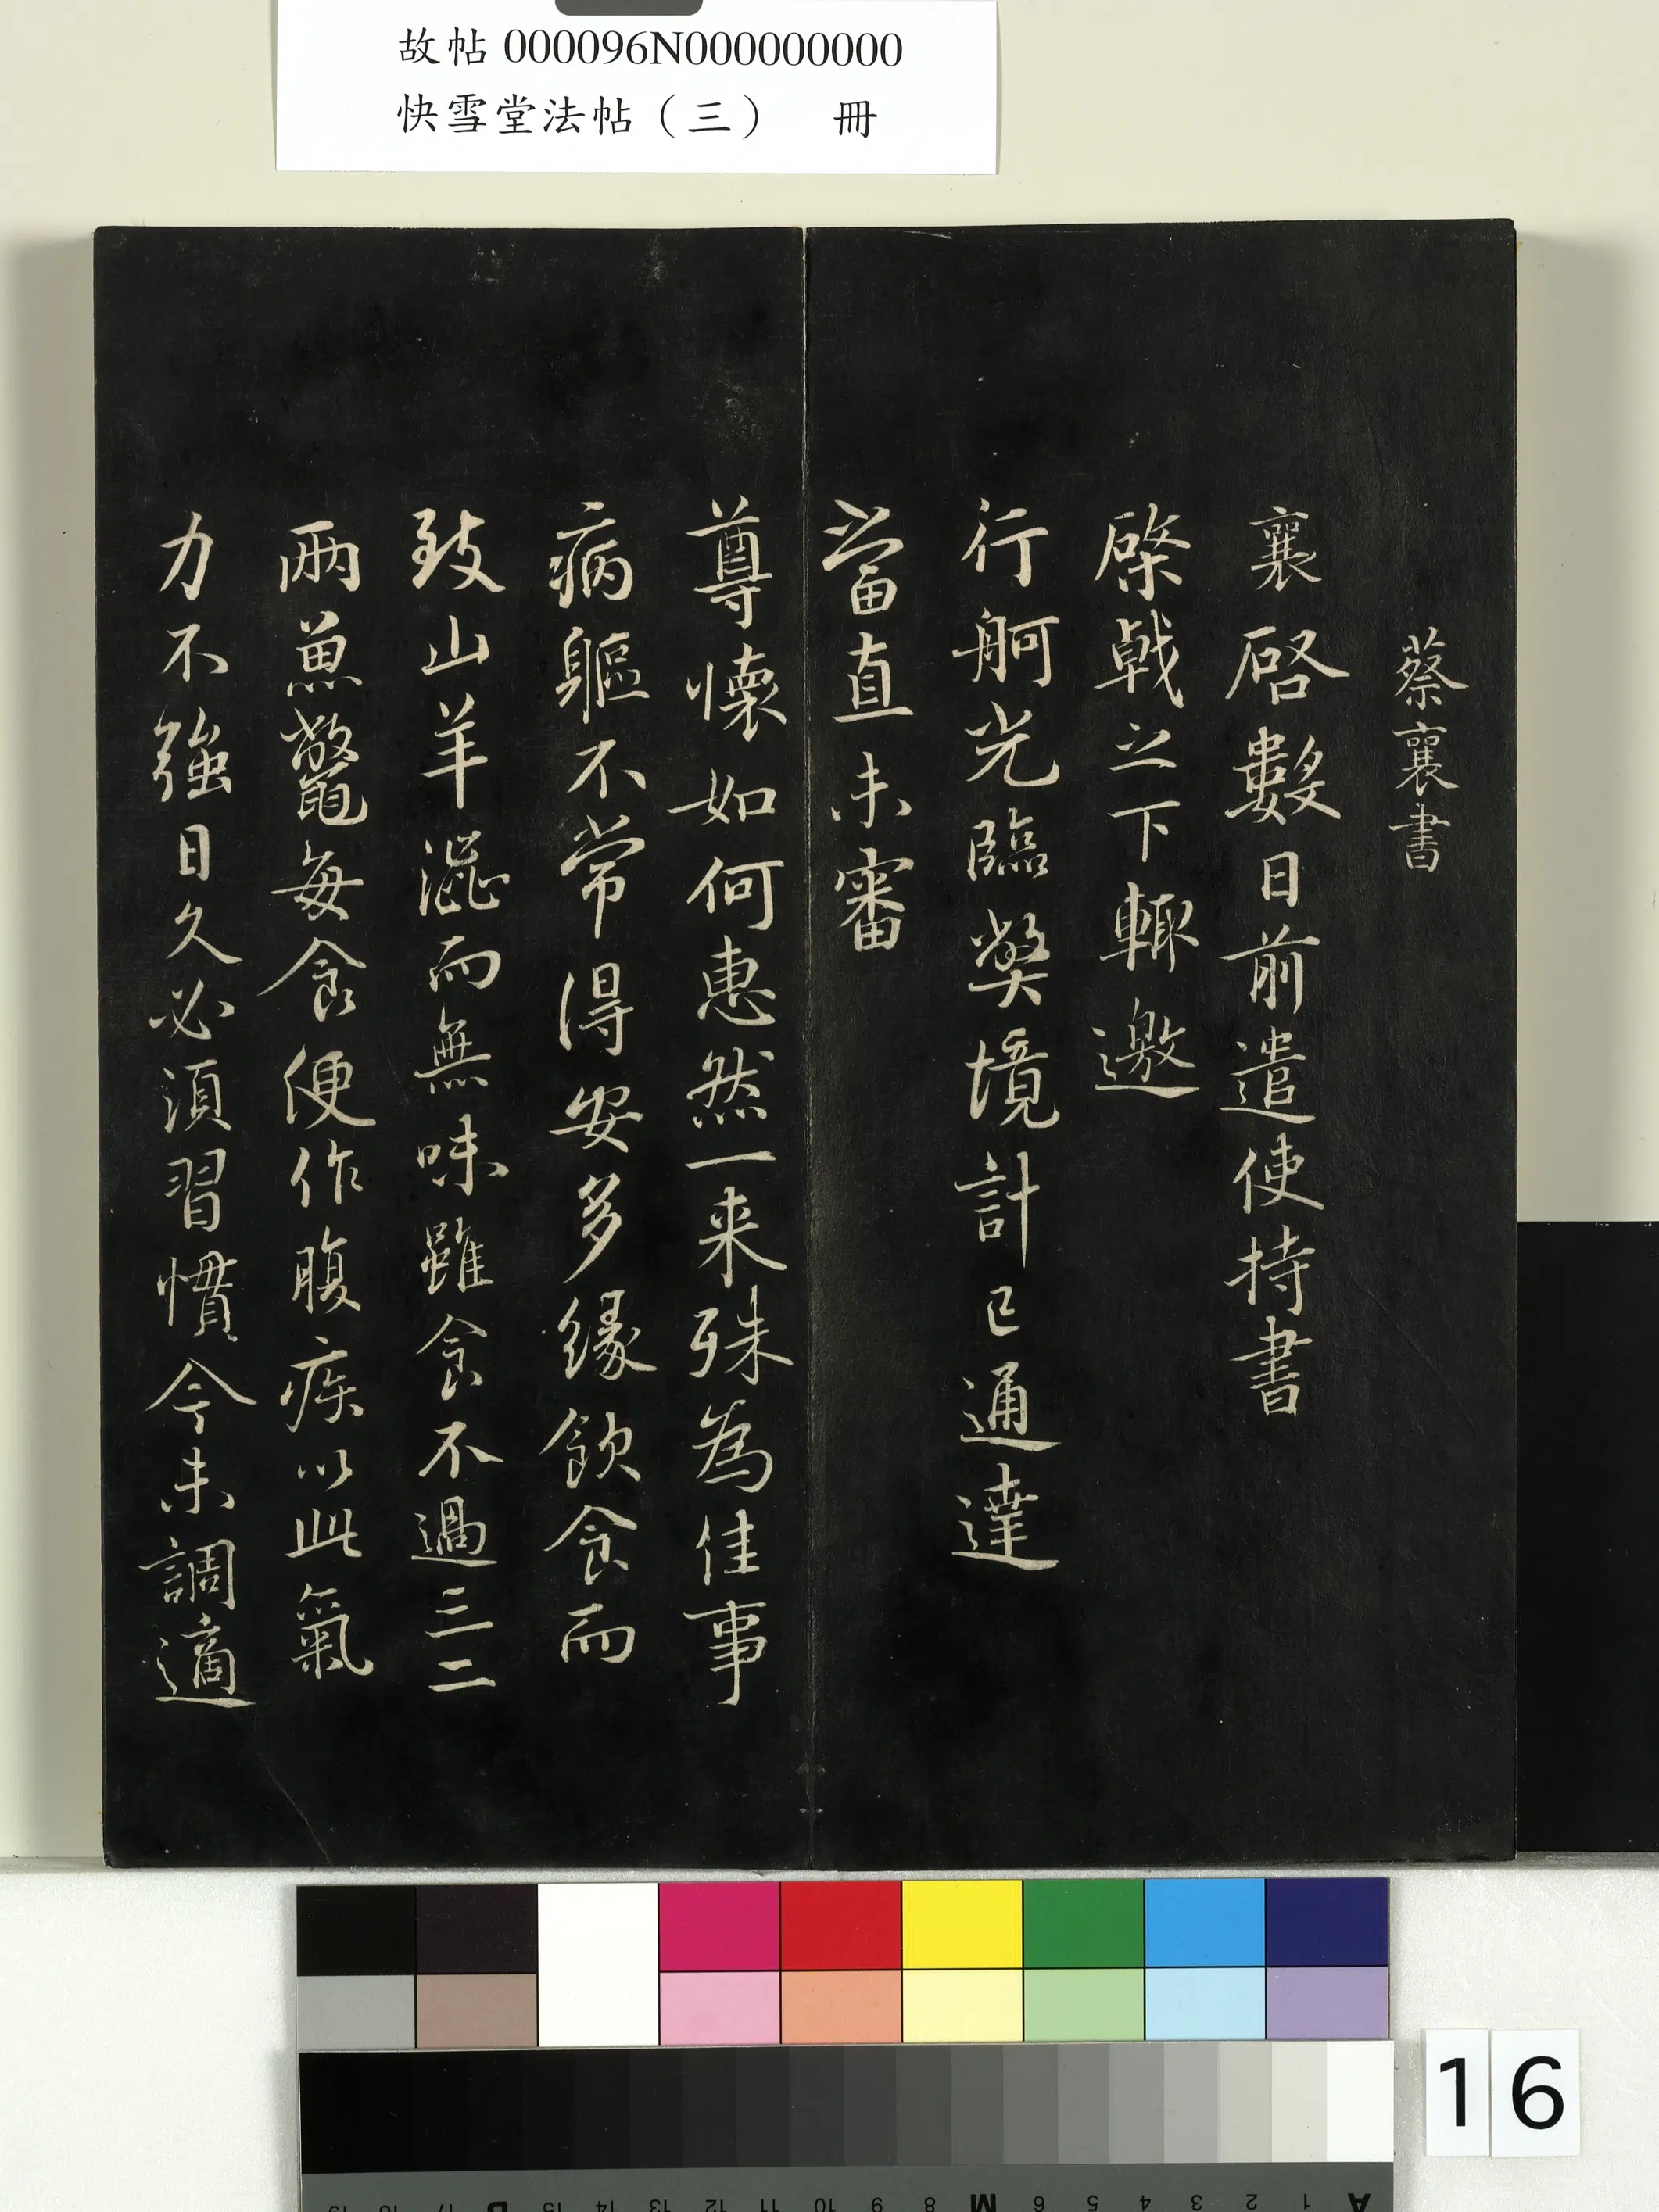 故帖 000096N000000000
快雪堂法帖（三） 冊
蔡襄書
襄啓數日前遣使持書
棨戟之下輙邀
行舸光臨獘境計已通達
當直未審
尊懷如何惠然一来殊為佳事
病軀不常得安多緣飲食而
致山羊澀而無味雖食不過三二
兩魚鼈每食便作腹疾以此氣
力不強日久必須習慣今未調適
16
A 1 2 3 4 5 6 M 8 9 10 11 12 13 14 15 B 17 18 19